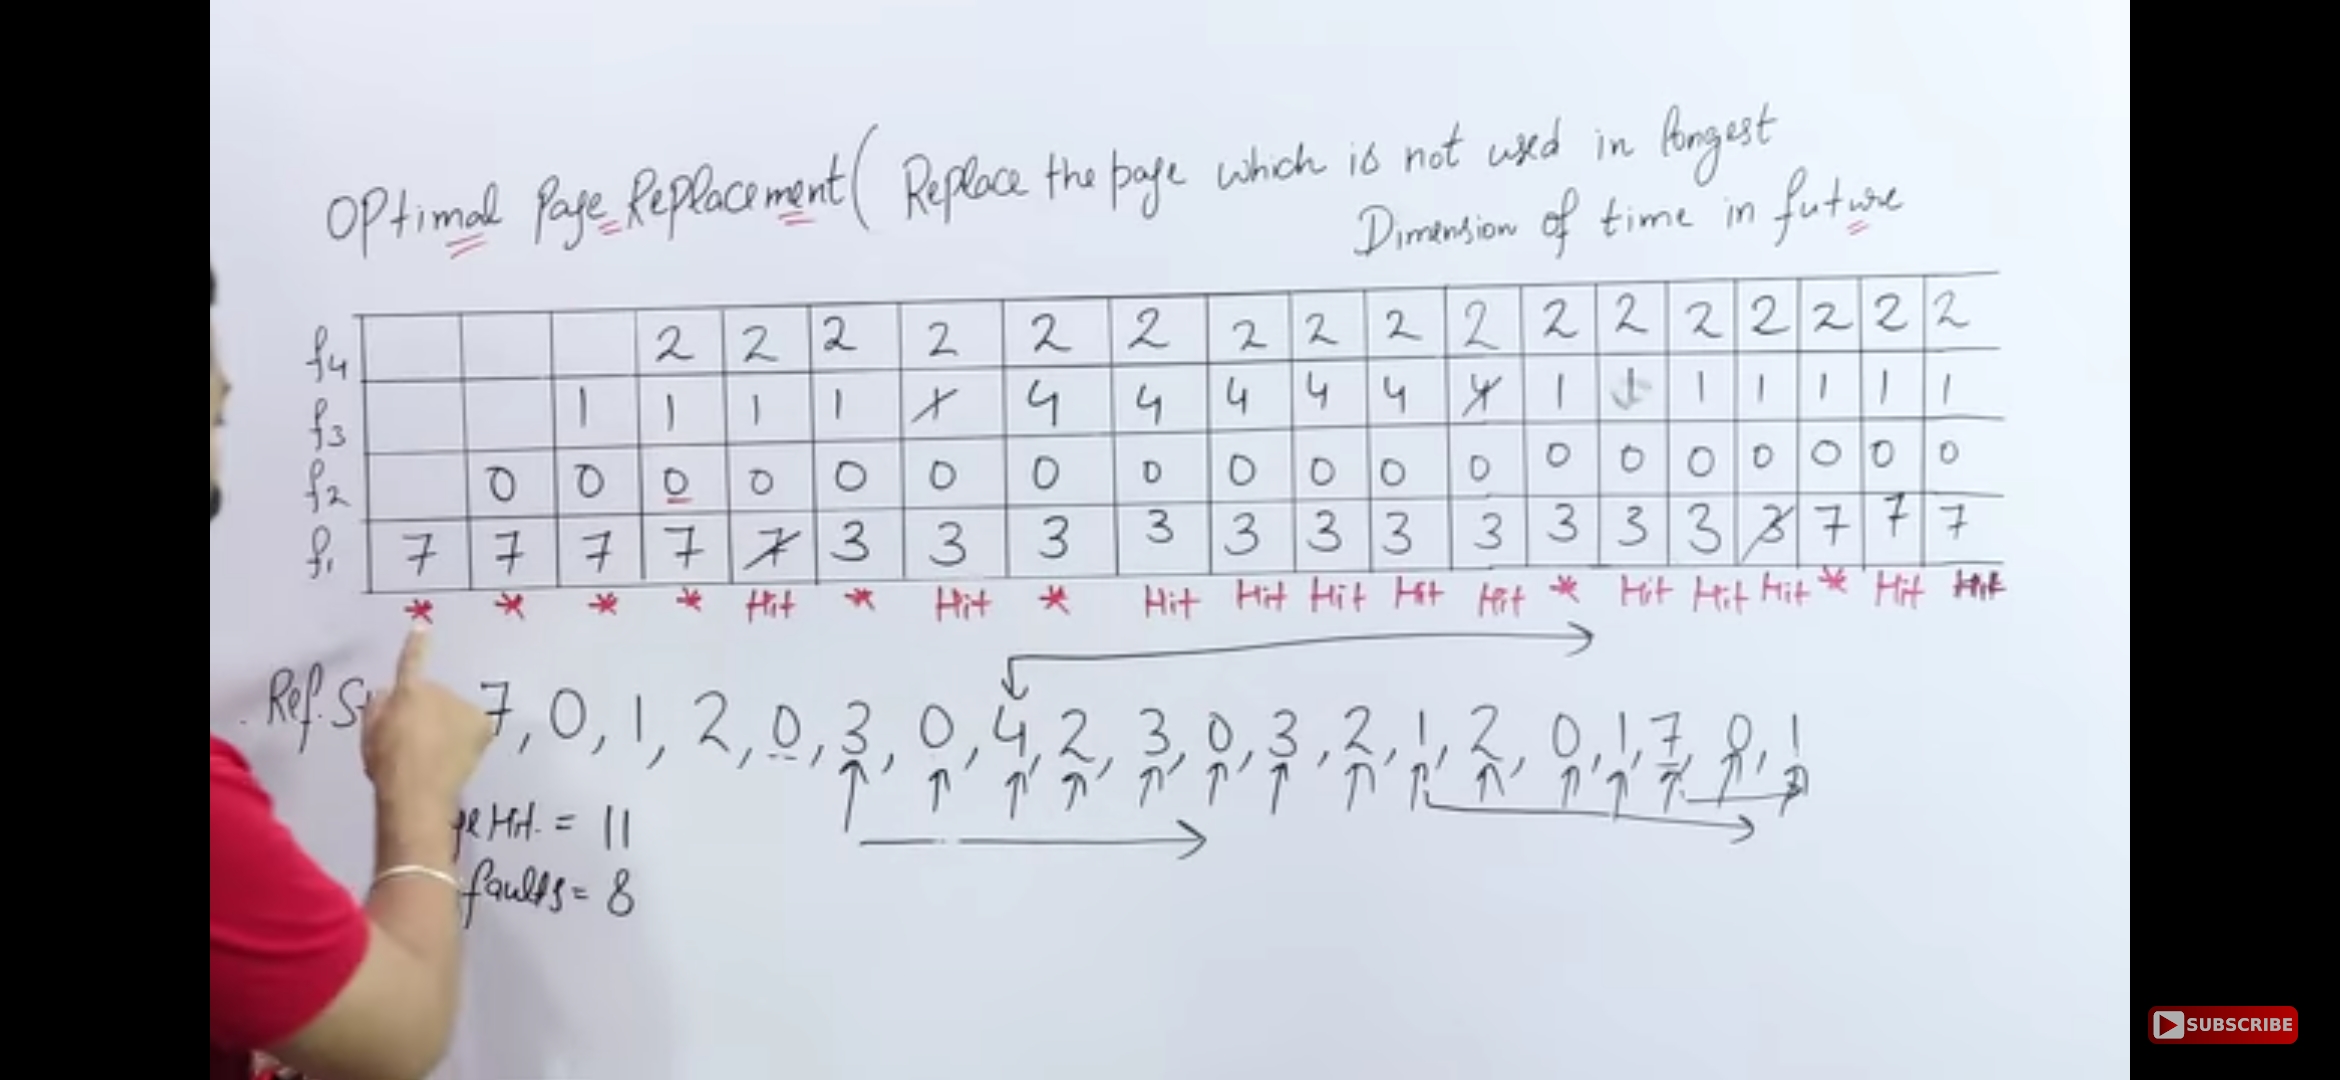 Optimal Page Replacement ( Replace the page which is not used in longest
Dimension of time in future
f4 2 2 2 2 2 2 2 2 2 2 2 2 2 2 2 2 2
f3 1 1 1 1 1 4 4 4 4 4 4 1 1 1 1 1 1 1
f2 0 0 0 0 0 0 0 0 0 0 0 0 0 0 0 0 0 0 0
f1 7 7 7 7 7 3 3 3 3 3 3 3 3 3 3 3 3 7 7 7
* * * * Hit * Hit * Hit Hit Hit Hit Hit * Hit Hit Hit * Hit Hit
Ref. 7, 0, 1, 2, 0, 3, 0, 4, 2, 3, 0, 3, 2, 1, 2, 0, 1, 7, 0, 1
Hit = 11
faults = 8
SUBSCRIBE